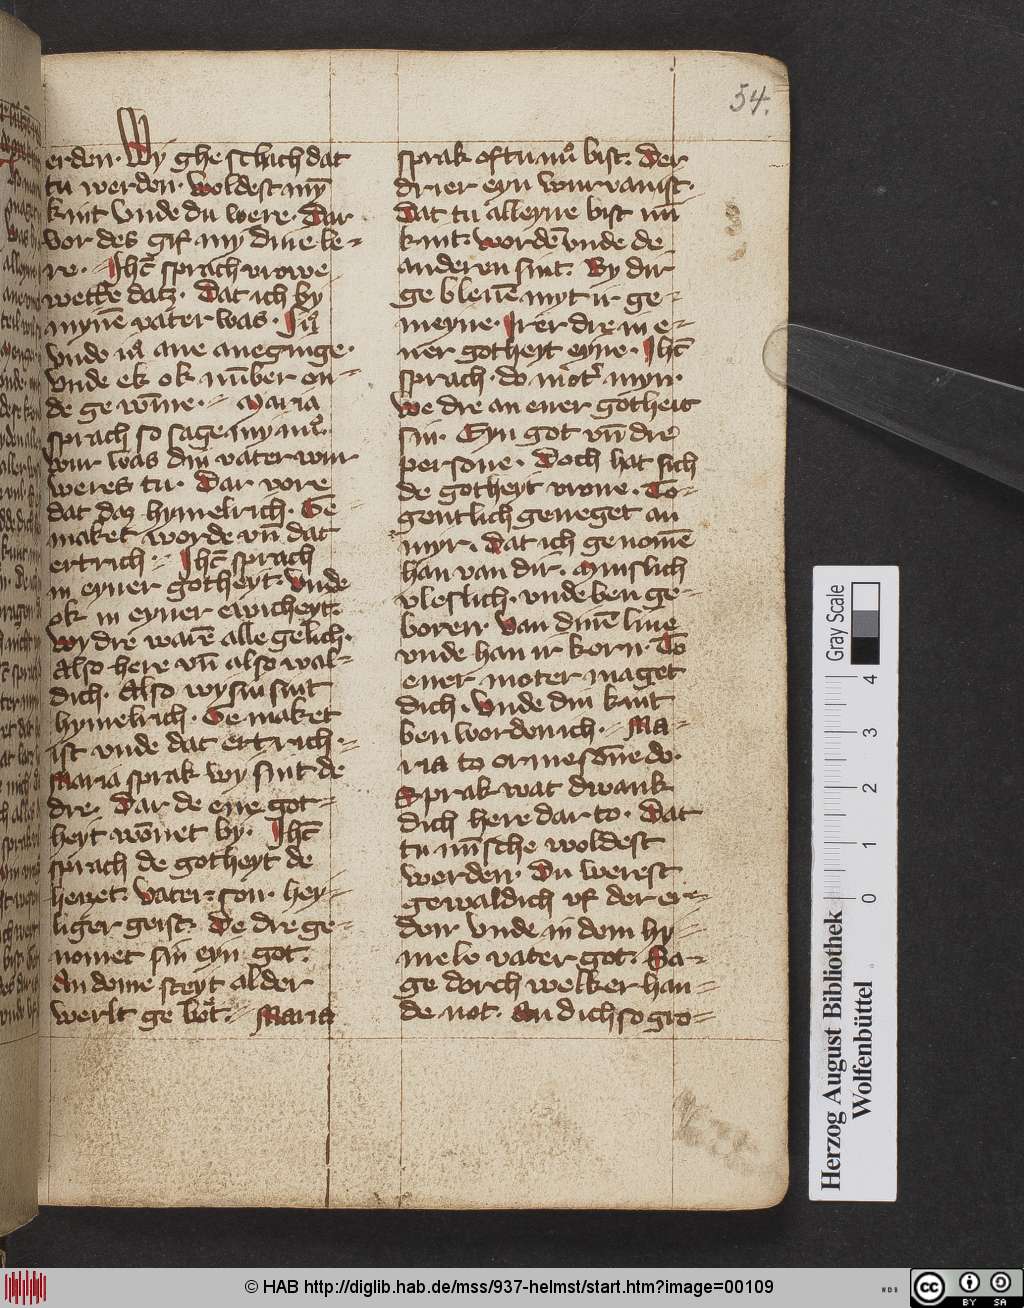 54.
erden· Wy ghe schach dat
tu werden· woldest myn̄
kint Vnde du were· Dar
vor des gif my dine le=
re· Ihc̄ sprach vrowe
wette datz· Dat ich by
mynē vater was·
Vnde iu͛ ane aneginge·
Vnde ek ok nūmber en=
de ge wīne· Maria
sprach so sage my nu͛·
wur was din vater wur
weres tu· Dar vore
dat daz hymelrich· Ge=
maket worde vn̄ dat
ertrich Ihc̄ sprach
in eyner gotheyt· Vnde
ok in eyner ewicheyt·
wy dre warē alle gelich·
Also here vn̄ also wal=
dich· Also wy sin sint
hymelrich· Ge maket
ist vnde dat ertrich·
Maria sprak wy sint de
dre· Dar de ene got=
heyt wōnet by· Ihc̄
sprach de gotheyt de
heizet· Vater· son· hey=
liger geist· De dre ge=
nomet sin eyn got·
An deme steyt al der
werlt ge bot· Maria
sprak oftu nu͛ bist· Der
drier eyn wur vanist·
Dat tu alleyne bist mī
kint· wordē vnde de
anderen sint· By dir
ge bleuē myt ir ge=
meyne· Irer dre in e=
ner gotheyt eyne· Ihc̄
sprach· do mot͛ myn·
we dre an ener gotheit
sin· Eyn got vn̄ dre
persone· Doch hat sich
de gotheyt vrone· To=
gentlich geneget an
myr· Dat ich genomē
han van dir· Minslich
vleslich· vnde ben ge=
boren· Van dinē liue
vnde han ir korn· To
ener moter maget
dich· Vnde din kint
ben worden ich· Ma=
ria to
Sprak wat dwank
dich here dar to· Dat
tu mīsche woldest
werden· Du werest
gewaldich vf der er=
den Vnde in dem hy=
mele vater got· Sa=
ge dorch welker han=
de not· An dich so gro=
Gray Scale
0 1 2 3 4
Herzog August Bibliothek
Wolfenbüttel
© HAB http://diglib.hab.de/mss/937-helmst/start.htm?image=00109
WDB
cc BY SA